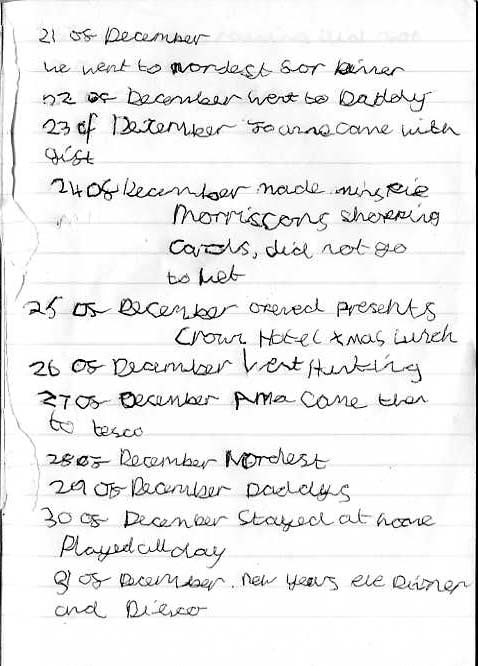 21 of December
we went to nordest for dinner
22 of December went to Daddy
23 of December came with
gift
24 of December made mins pie
Morriscons shopping
cards, did not go
to bet
25 of December opened presents
Crown Hotel xmas lunch
26 of December Went Hunting
27 of December Ama came then
to tesco
28 of December Nordest
29 of December Daddys
30 of December Stayed at home
Played all day
31 of December. new years eve Dinner
and Disco